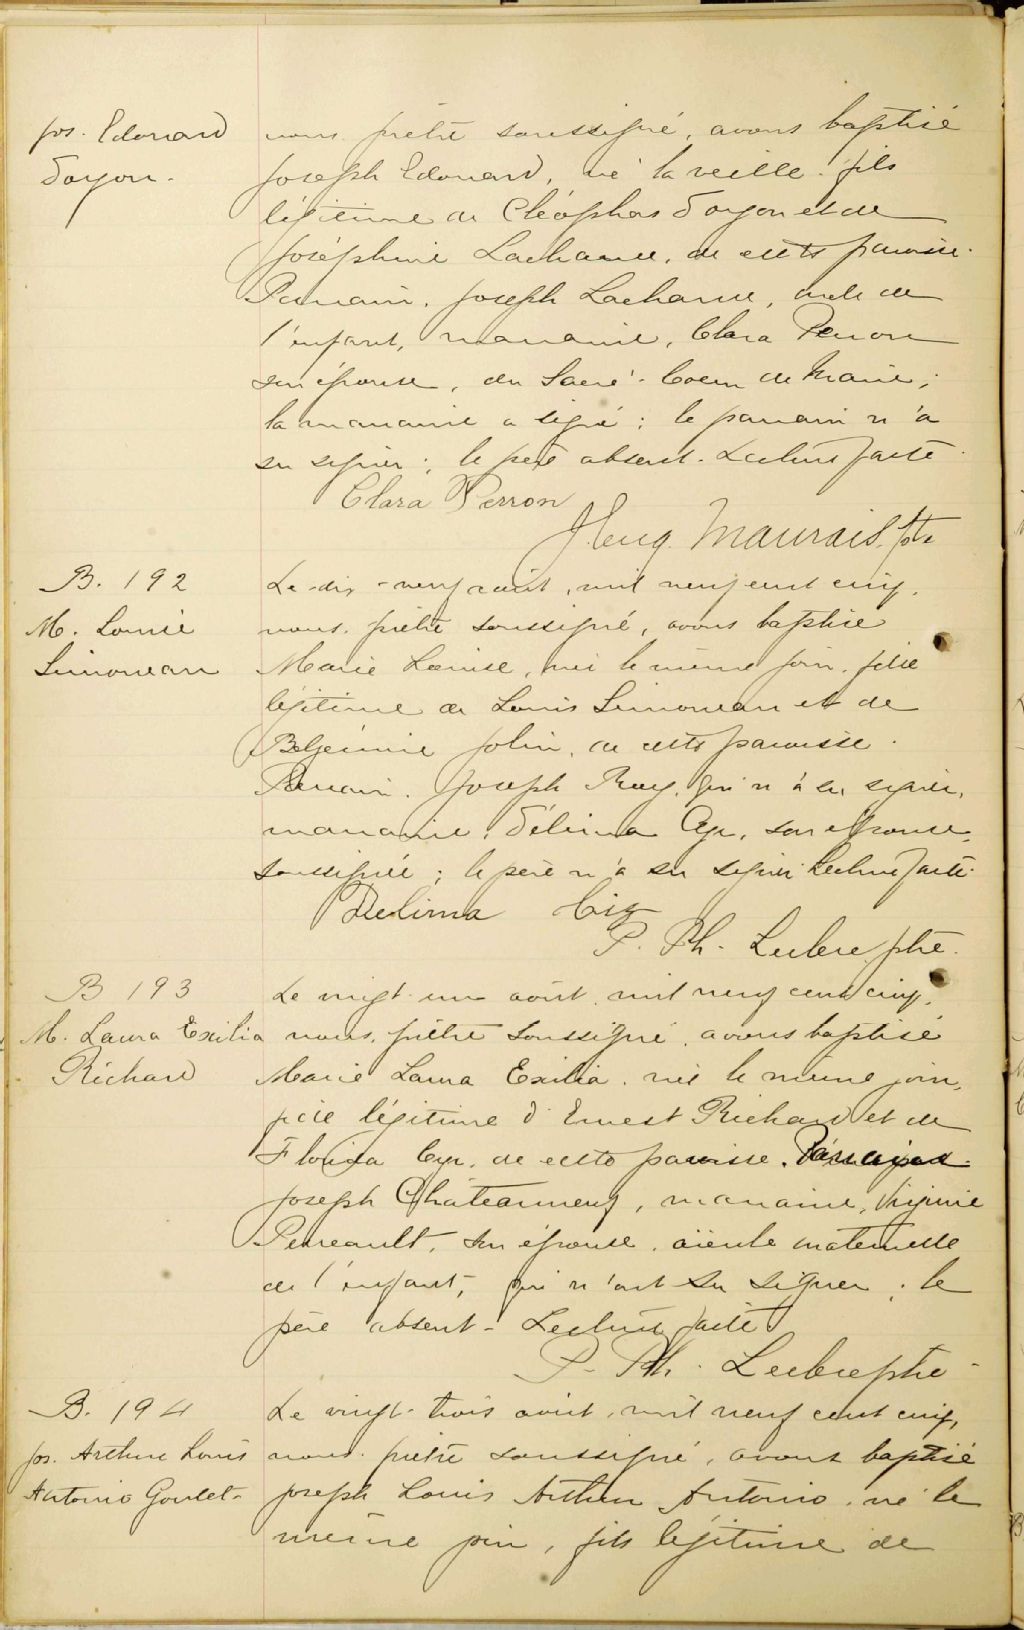 jos. Edouard
Doyon.
nous prêtre soussigné, avons baptisé
Joseph Edouard, né la veille, fils
légitime de Cléophas Doyon et de
Joséphine Lachance, de cette paroisse.
Parrain, Joseph Lachance, oncle de
l'enfant, marraine, Clara Perron
son épouse, du Sacré-Coeur de Marie;
la marraine a signé; le parrain n'a
su signer; le père absent. Lecture faite.
Clara Perron
J. Eug. Maurais, ptre
B. 192
M. Louise
Simoneau
Le dix-neuf août, mil neuf cent cinq,
nous, prêtre soussigné, avons baptisé
Marie Louise, née le même jour, fille
légitime de Louis Simoneau et de
Belzémire Jolin, de cette paroisse.
Parrain, Joseph Roy, qui n'a su signer,
marraine, Délima Cyr, son épouse,
soussignée; le père n'a su signer. Lecture faite.
Delima Cir
P. Ph. Leclerc ptre.
B 193
M. Laura Exilia
Richard
Le vingt-un août, mil neuf cent cinq,
nous, prêtre soussigné, avons baptisé
Marie Laura Exilia, née le même jour,
fille légitime d'Ernest Richard et de
Florida Cyr, de cette paroisse. Parrain
Joseph Châteauneuf, marraine, Virginie
Perreault, son épouse, aïeule maternelle
de l'enfant, qui n'ont su signer; le
père absent. Lecture faite.
P. Ph. Leclerc ptre
B. 194
jos. Arthur Louis
Antonio Goulet.
Le vingt-trois août, mil neuf cent cinq,
nous, prêtre soussigné, avons baptisé
Joseph Louis Arthur Antonio, né le
même jour, fils légitime de